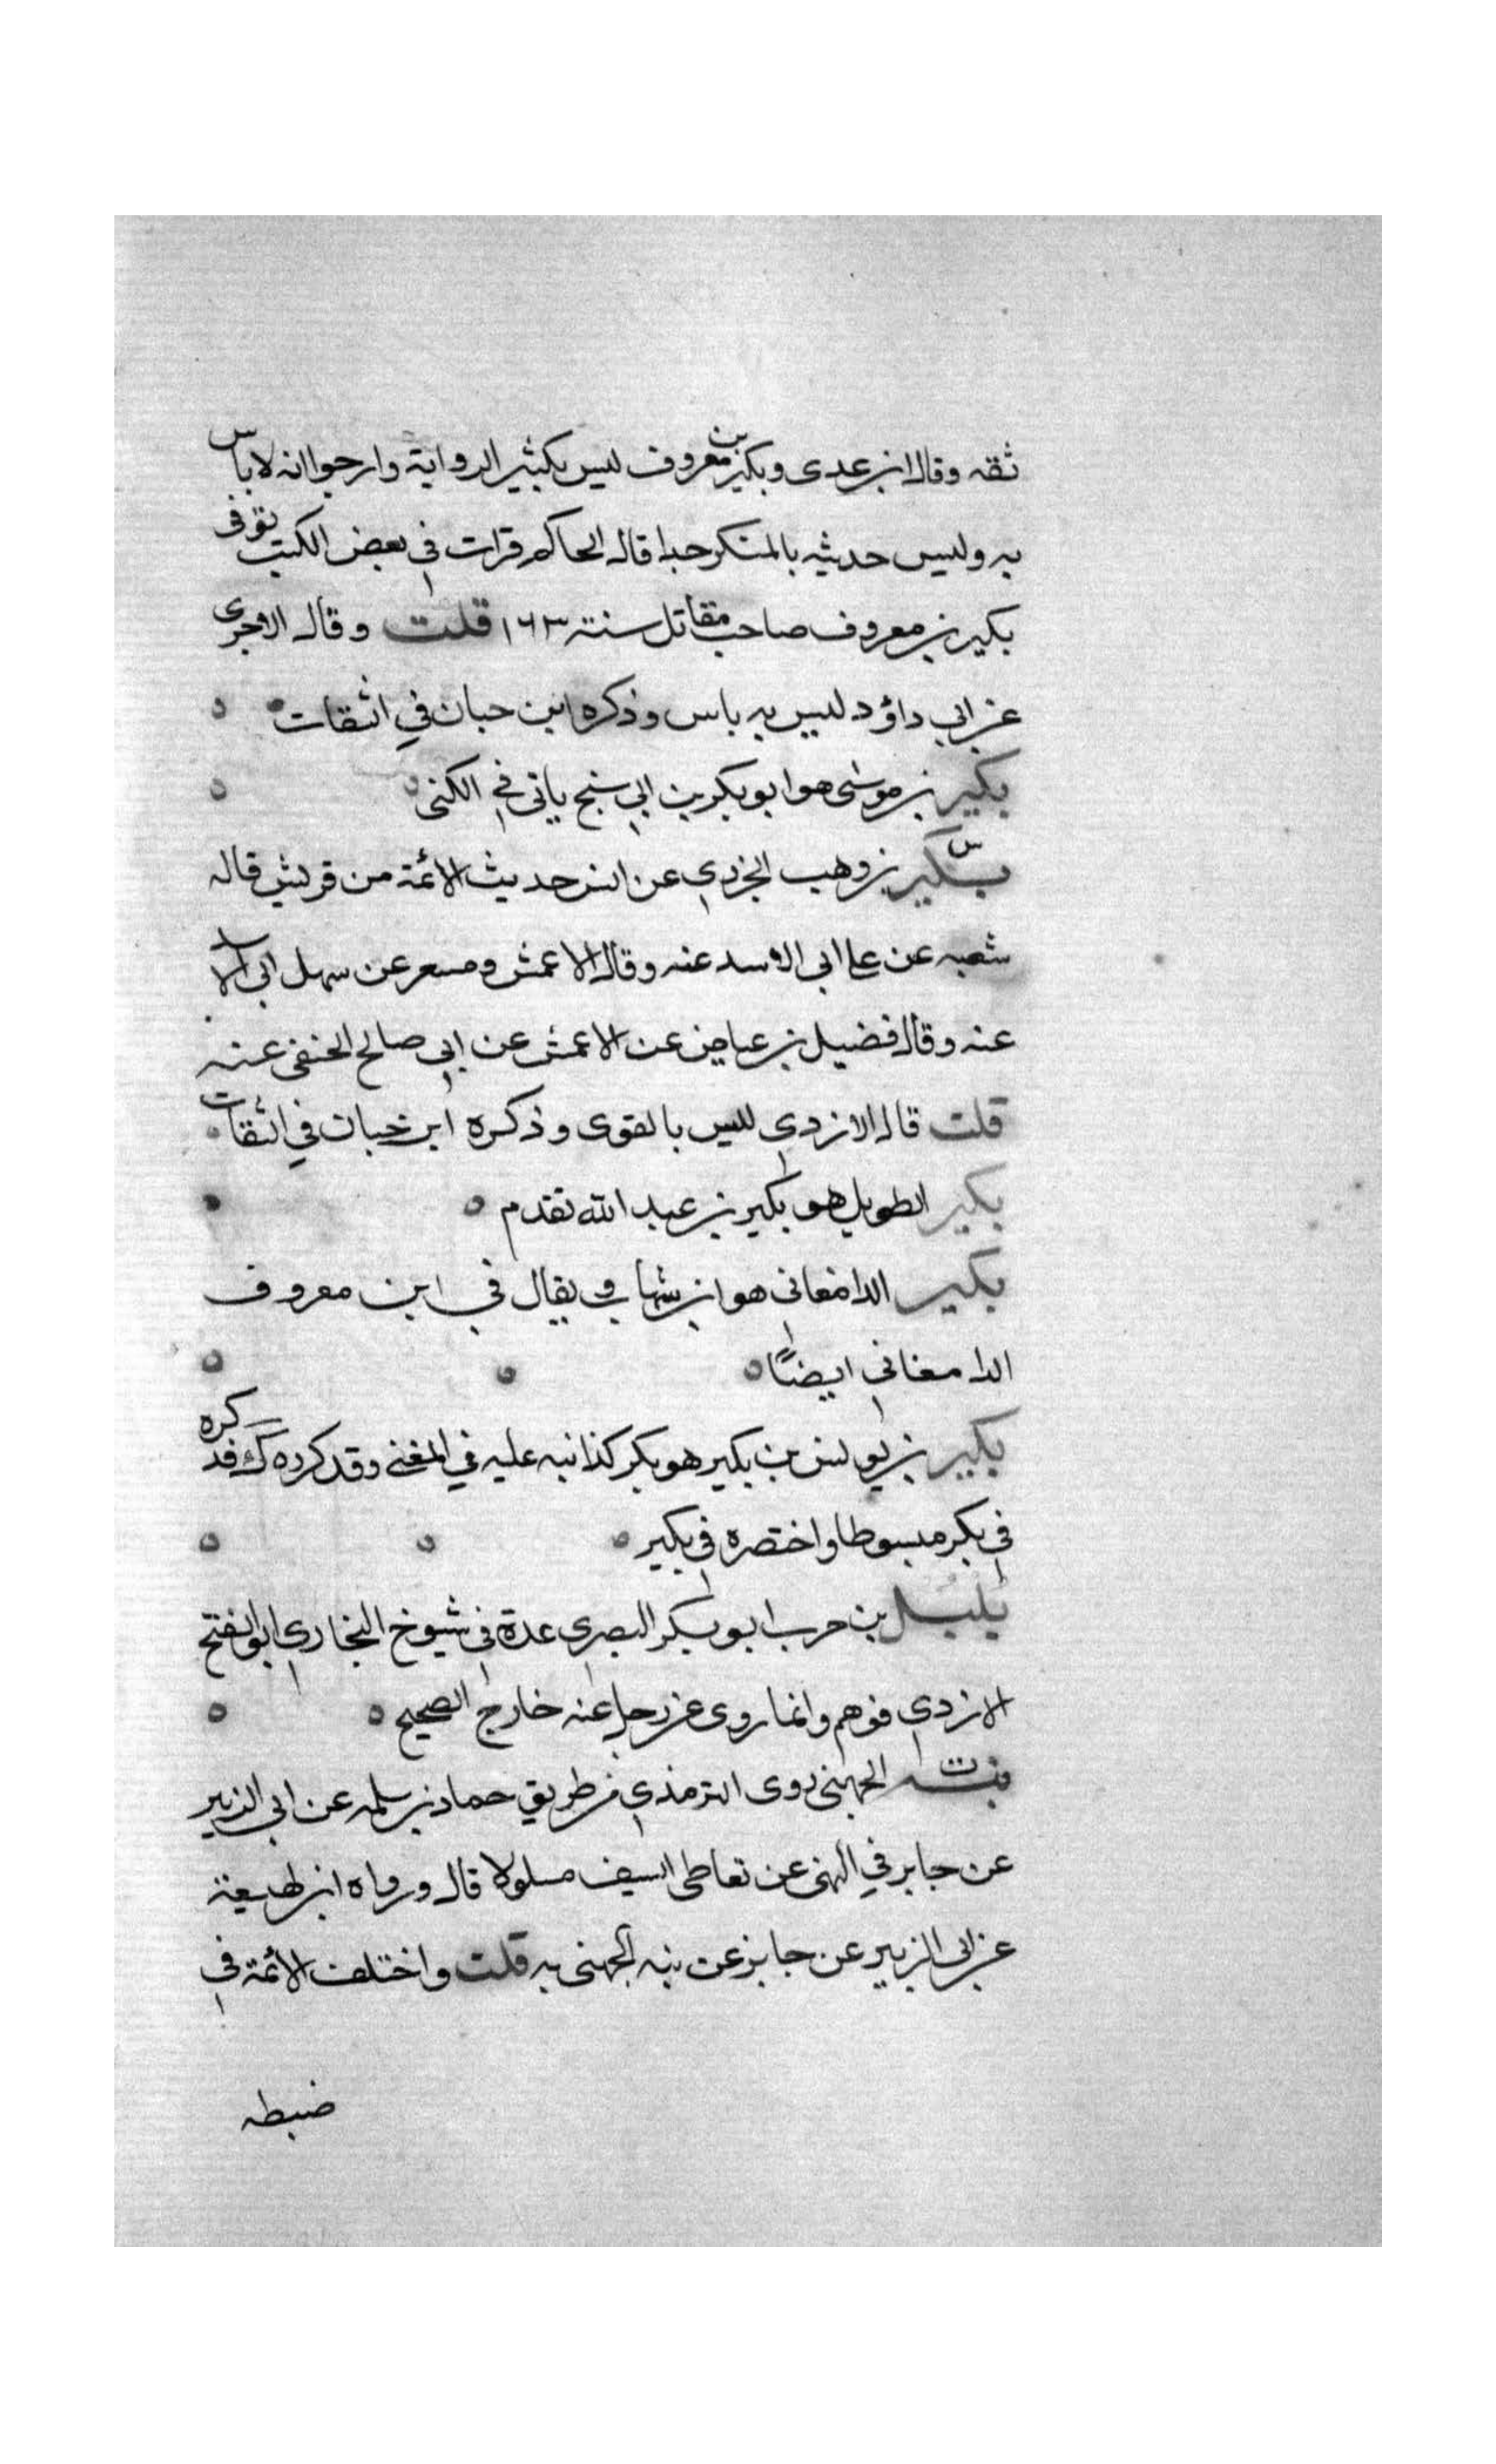 ثقه وقال ابن عدى وبكير بن معروف ليس بكثير الرواية وارجوا انه لا باس
به وليس حديثه بالمنكر جدا قال الحاكم قرات في بعض الكتب توفى
بكير بن معروف صاحب مقاتل سنة ١٦٣ قلت وقال الاجرى
عن ابي داؤد ليس به باس وذكره ابن حبان في الثقات
بكير بن موسى هو ابو بكر بن ابي شيخ ياتى في الكنى
س بكير بن وهب الجزري عن انس حديث الائمة من قريش قاله
شعبه عن على ابي الاسد عنه وقال الاعمش ومسعر عن سهل ابي الاسد
عنه وقال فضيل بن عياض عن الاعمش عن ابي صالح الحنفى عنه
قلت قال الازدي ليس بالقوى وذكره ابن حبان في الثقات
بكير الطويل هو بكير بن عبد الله تقدم
بكير الدامغانى هو ابن شهاب ويقال في ابن معروف
الدامغاني ايضًا
بكير بن يونس بن بكير هو بكر كذا نبه عليه في المغنى وقد كرده ك فذكره
في بكر مبسوطا واختصره في بكير
بلبل بن حرب ابو بكر البصرى عدة في شيوخ البخاري ابو الفتح
الازدي فوهم وانما روى عن رجل عنه خارج الصحيح
ت بنه الجهنى روى الترمذي من طريق حماد بن سلمه عن ابي الزبير
عن جابر في النهى عن تعاطى السيف مسلولا قال ورواه ابن لهيعة
عن ابى الزبير عن جابر عن بنه الجهنى به قلت واختلف الائمة في
ضبطه